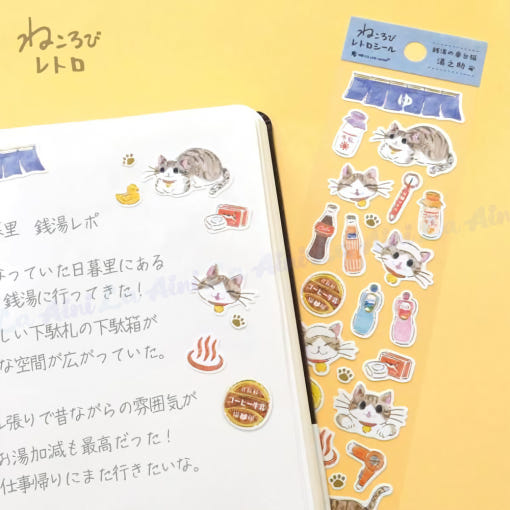 ねころび
レトロ
ねころび
レトロシール
銭湯の番台猫
湯之助
ゆ
里 銭湯レポ
なっていた日暮里にある
銭湯に行ってきた!
しい下駄札の下駄箱が
な空間が広がっていた。
張りで昔ながらの雰囲気が
お湯加減も最高だった!
仕事帰りにまた行きたいな。
コーヒー牛乳
コーヒー牛乳